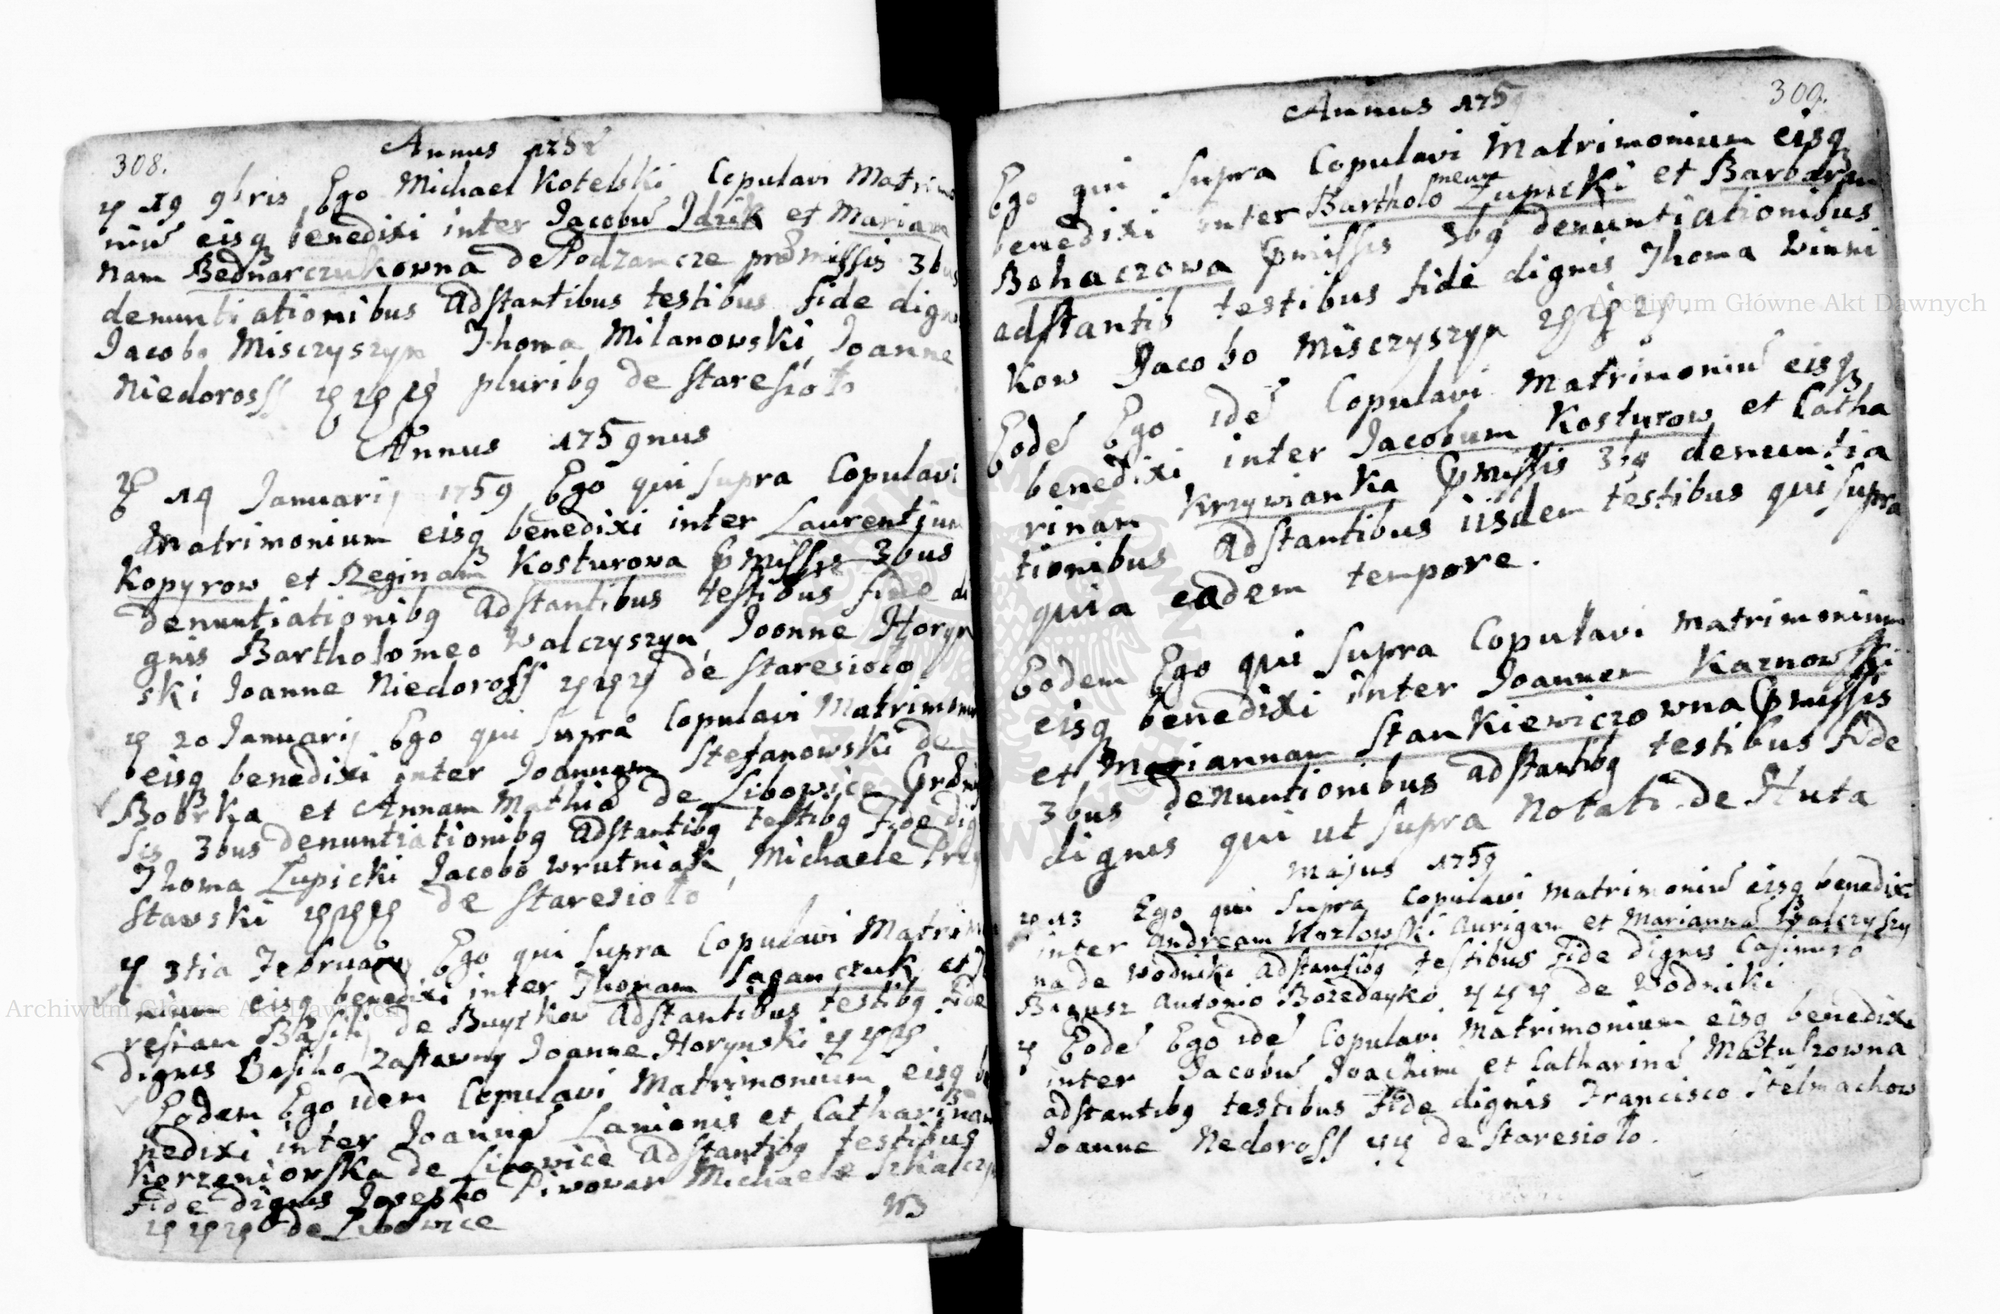 308.
Annus 1758
19 9bris Ego Michael Kotelski Copulavi Matrimo
niū eisq benedixi inter Jacobū Idzik et Marian
nam Bednarczukowna de Podzamcze præmissis 3bus
denuntiationibus adstantibus testibus fide dignis
Jacobo Misczyszyn Thoma Milanowski Joanne
Niedoross pluribq de Staresioło
Annus 1759nus
14 Januarij 1759 Ego qui supra Copulavi
Matrimonium eisq benedixi inter Laurentium
Kopyrow et Reginam Kosturowa pmissis 3bus
denuntiationibq adstantibus testibus fide di
gnis Bartholomeo Walczyszyn Joanne Horyn
ski Joanne Niedoross de Staresioło
20 Januarij Ego qui supra Copulavi Matrimonium
eisq benedixi inter Joannem Stefanowski de
Bobrka et Annam Mathiæ de Libowice præmis
sis 3bus denuntiationibq adstantibq testibq Fide dig
Thoma Zupicki Jacobo Wrutniak Michaele Przy
stawski de Staresioło
3tia Februarij Ego qui supra Copulavi Matrimo
nium eisq benedixi inter Thomam Saganczuk et
resiam Basilij de Buyrkow adstantibus testibq Fide
dignis Basilio Zastawny Joanne Horynski
Eodem Ego idem Copulavi Matrimonium eisq be
nedixi inter Joannē Lanionis et Catharinam
Korzeniowska de Libowice adstantibq testibus
Fide dignis Josepho Piwowar Michaele
de Libowice
N3
309.
Annus 1759
Ego qui supra Copulavi Matrimonium eisq
benedixi inter Bartholomeum Zupicki et Barbaram
Bohaczowa pmissis 3bq denuntiationibus
adstantib testibus fide dignis Thoma Winni
kow Jacobo Misczyszyn
Eodē Ego idē Copulavi Matrimoniū eisq
benedixi inter Jacobum Kosturow et Catha
rinam Krzywianka pmissis 3bq denuntia
tionibus adstantibus iisdem testibus qui supra
quia eadem tempore.
Eodem Ego qui supra Copulavi matrimonium
eisq benedixi inter Joannem Kaznowski
et Mariannam Stankiewiczowna pmissis
3bus denuntionibus adstantibq testibus fide
dignis qui ut supra Notati de Huta
Majus 1759
13 Ego qui supra Copulavi matrimoniū eisq benedixi
inter Andream Kozlowski Aurigam et Mariannā Walczyszy
na de Wodniki adstantibq testibus Fide dignis Casimiro
Bigusz Antonio Bozedayko de Wodniki
Eodē Ego idē Copulavi Matrimonium eisq benedixi
inter Jacobū Joachimi et Catharinā Matuszowna
adstantibq testibus Fide dignis Francisco Stelmachow
Joanne Nedoross de Staresioło.
Archiwum Główne Akt Dawnych
Archiwum Główne Akt Dawnych